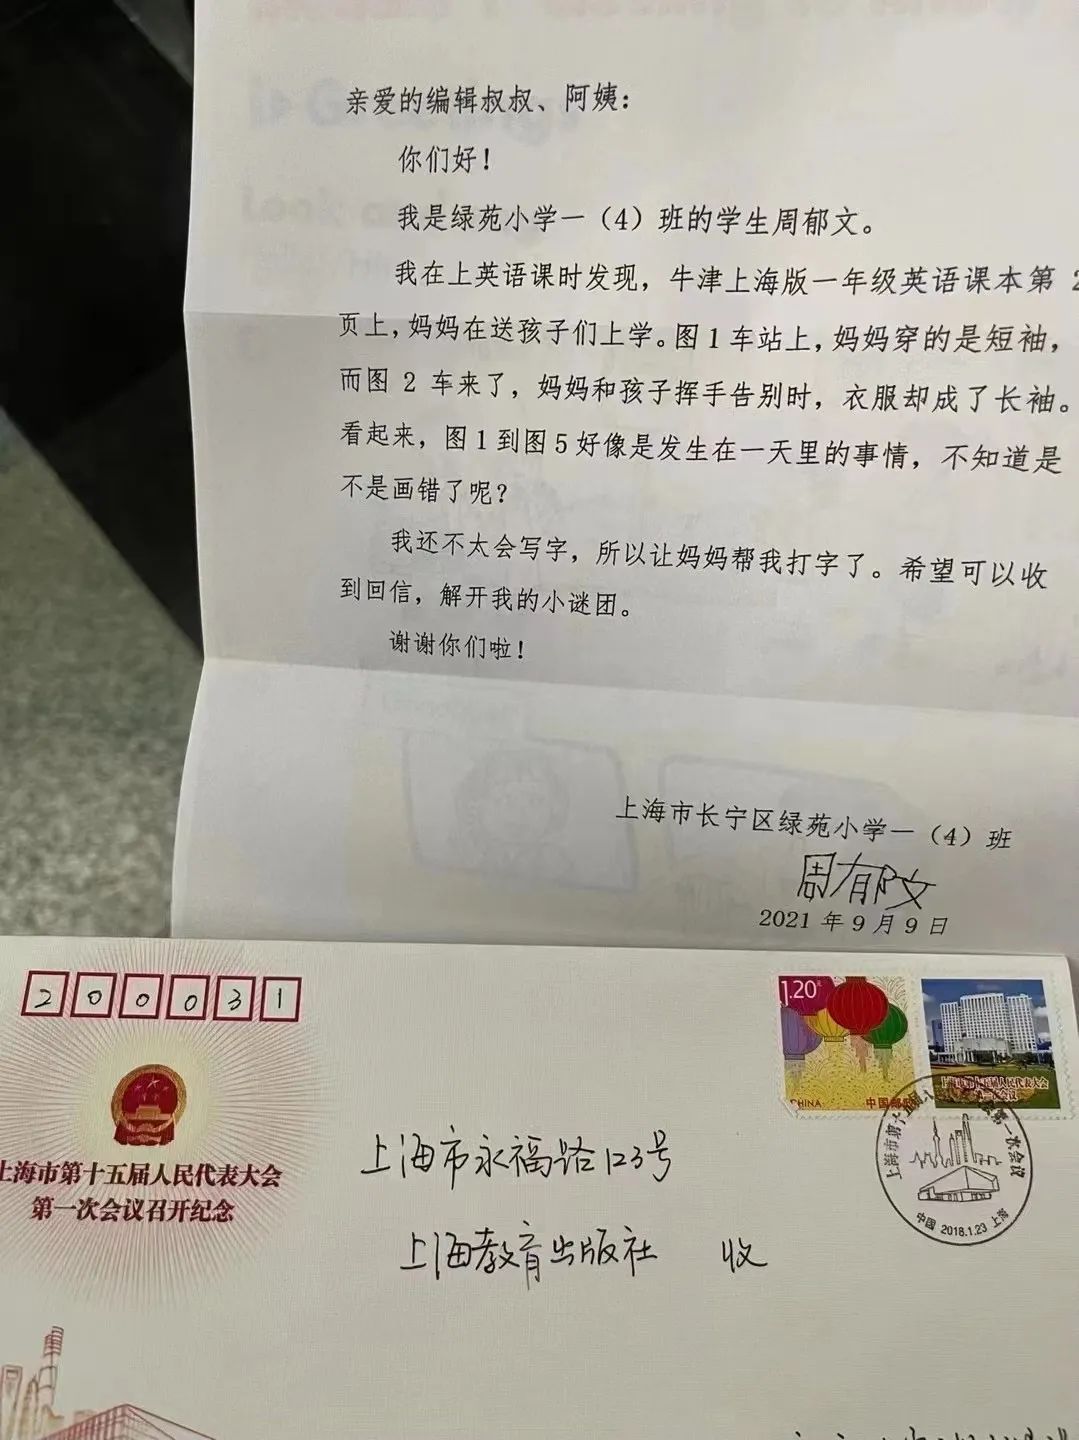 亲爱的编辑叔叔、阿姨：
你们好！
我是绿苑小学一（4）班的学生周郁文。
我在上英语课时发现，牛津上海版一年级英语课本第 2
页上，妈妈在送孩子们上学。图 1 车站上，妈妈穿的是短袖，
而图 2 车来了，妈妈和孩子挥手告别时，衣服却成了长袖。
看起来，图 1 到图 5 好像是发生在一天里的事情，不知道是
不是画错了呢？
我还不太会写字，所以让妈妈帮我打字了。希望可以收
到回信，解开我的小谜团。
谢谢你们啦！
上海市长宁区绿苑小学一（4）班
周郁文
2021 年 9 月 9 日
200031
1.20元
CHINA
中国邮政
上海市第十五届人民代表大会
第一次会议
上海市第十五届人民代表大会第一次会议
中国 2018.1.23 上海
上海市第十五届人民代表大会
第一次会议召开纪念
上海市永福路123号
上海教育出版社 收